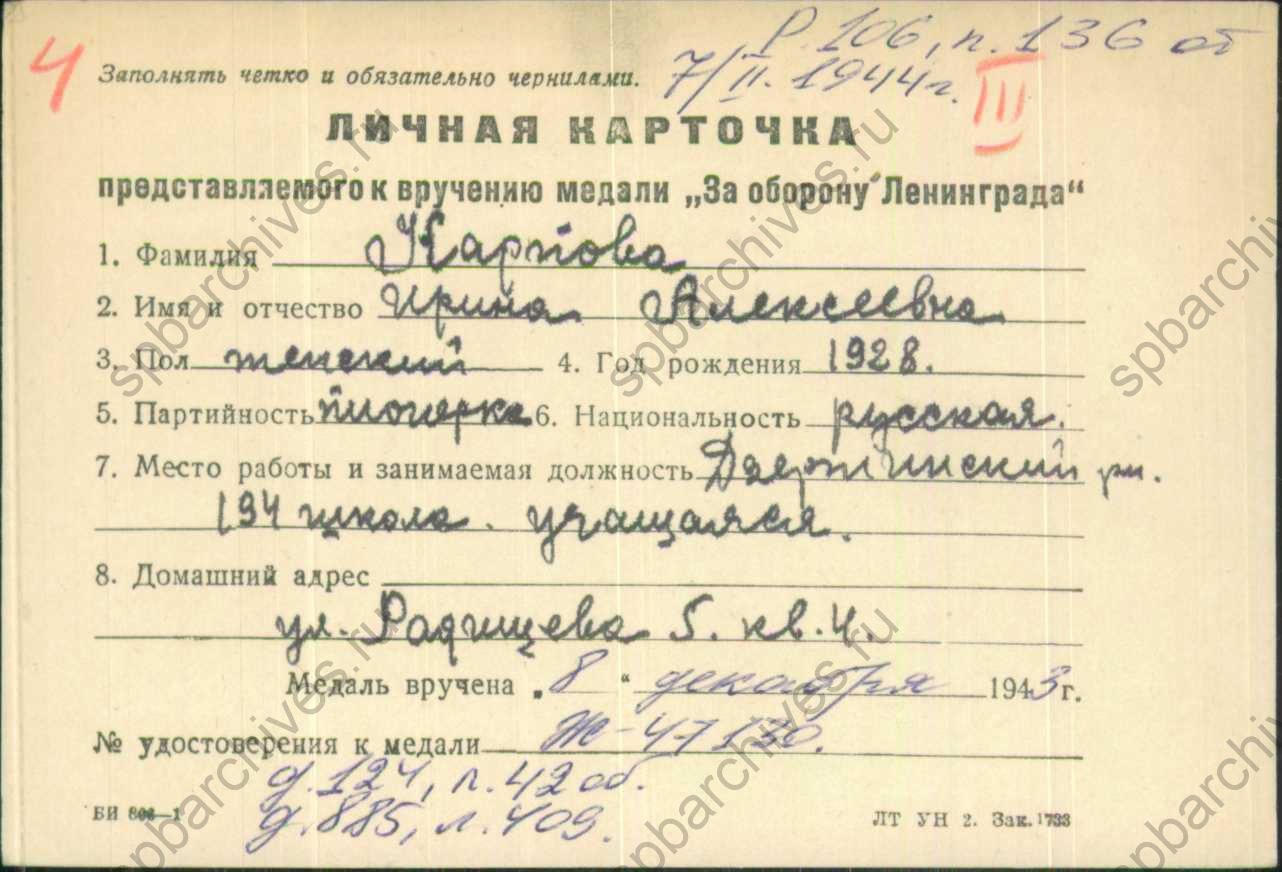 Р. 106, п. 136 от
7/II. 1944 г.
4
III
Заполнять четко и обязательно чернилами.
ЛИЧНАЯ КАРТОЧКА
представляемого к вручению медали „За оборону Ленинграда“
1. Фамилия Карпова
2. Имя и отчество Ирина Алексеевна
3. Пол женский 4. Год рождения 1928.
5. Партийность пионерка 6. Национальность русская.
7. Место работы и занимаемая должность Дзержинский рн.
194 школа. учащаяся.
8. Домашний адрес
ул. Радищева 5. кв. 4.
Медаль вручена „8“ декабря 1943 г.
№ удостоверения к медали Ж-47130.
д. 124, л. 42 об.
д. 885, л. 409.
БИ 806—1
ЛТ УН 2. Зак. 1733
spbarchives.ru